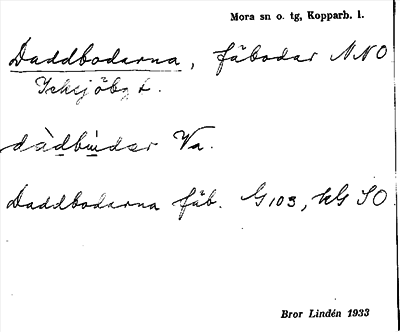 Mora sn o. tg, Kopparb. l.
Daddbodarna, fäbodar NNO
dàdbùdar Va.
Daddbodarna fäb. G103, kG SO
Bror Lindén 1933